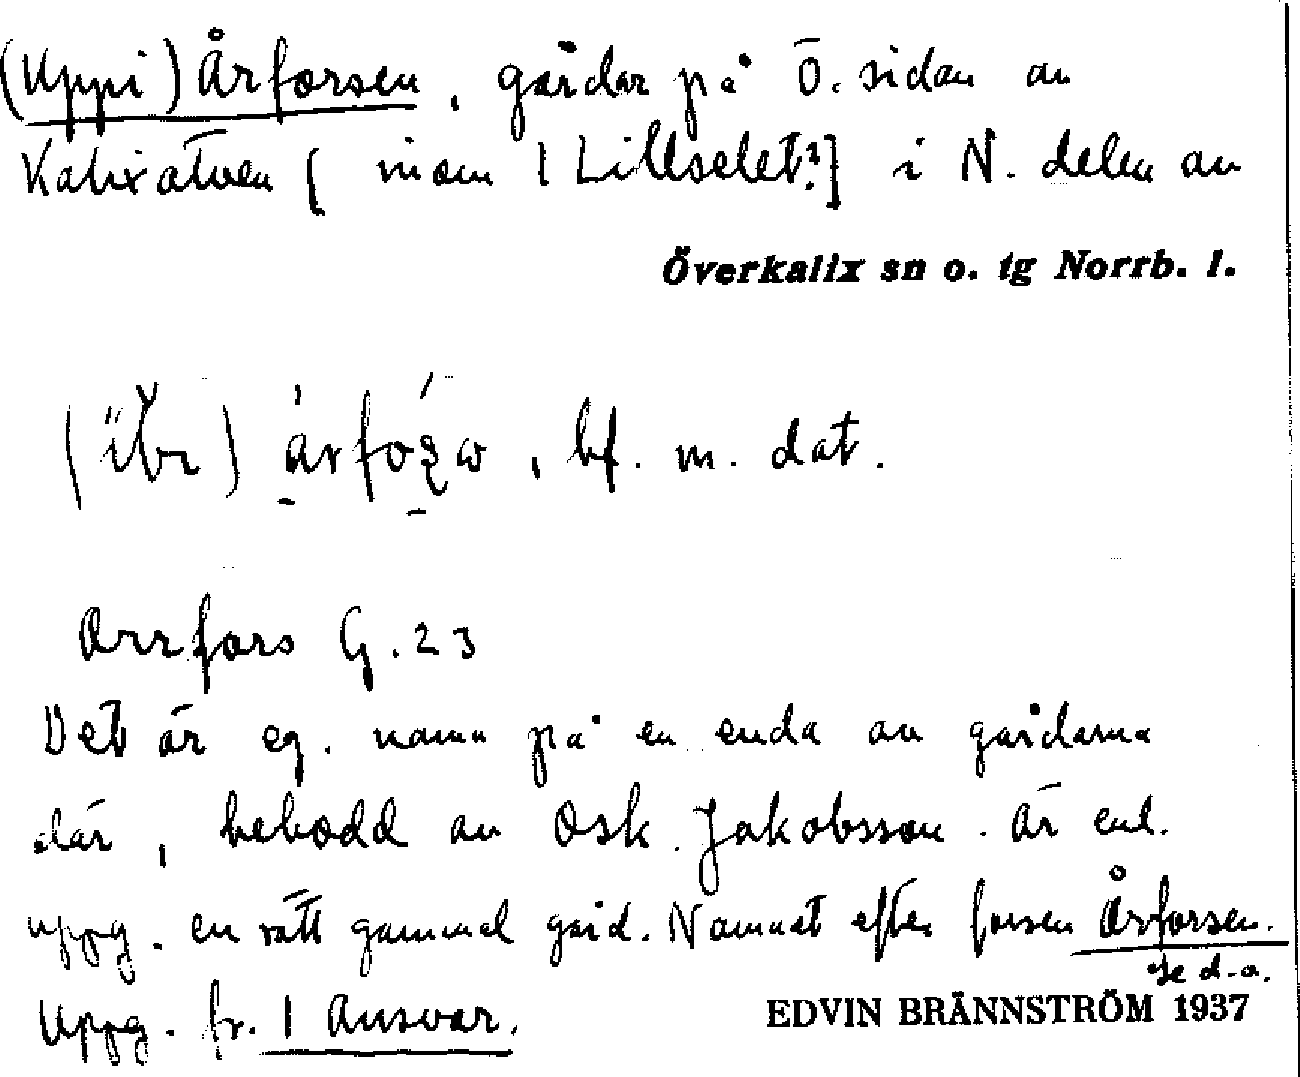 (Uppi) Årforsen, gårdar på Ö. sidan av
Kalixälven [ inom 1 Lillselet?] i N. delen av
Överkalix sn o. tg Norrb. l.
bf. m. dat.
Orrfors G. 23
Det är eg. namn på en enda av gårdarna
där, bebodd av Osk. Jakobsson. Är enl.
uppg. en rätt gammal gård. Namnet efter forsen Årforsen.
se d.o.
Uppg. fr. 1 Ansvar.
EDVIN BRÄNNSTRÖM 1937